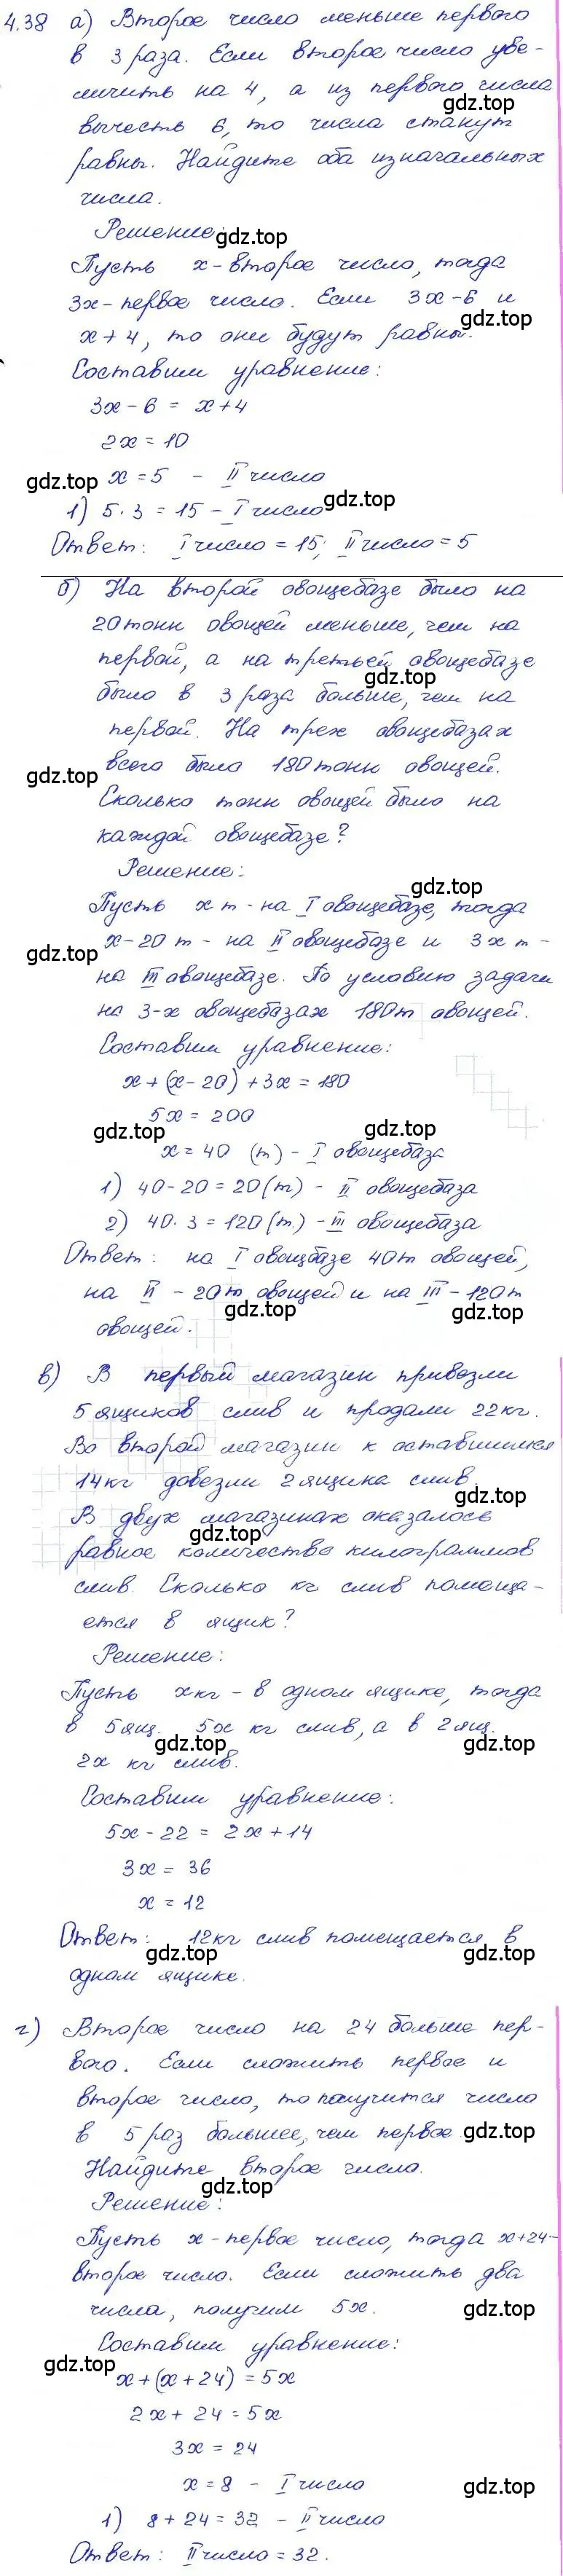 4.38 а) Второе число меньше первого
в 3 раза. Если второе число уве-
личить на 4, а из первого числа
gdz.top
вычесть 6, то числа станут
равны. Найдите оба изначальных
числа.
Решение:
gdz.top
Пусть x - второе число, тогда
3x - первое число. Если 3x - 6 и
gdz.top
x + 4, то они будут равны.
Составим уравнение:
3x - 6 = x + 4
2x = 10
gdz.top x = 5 - II число
gdz.top
1) 5 · 3 = 15 - I число
Ответ: I число = 15; II число = 5
б) На второй овощебазе было на
20 тонн овощей меньше, чем на
первой, а на третьей овощебазе
gdz.top
было в 3 раза больше, чем на
первой. На трех овощебазах
всего было 180 тонн овощей.
gdz.top
Сколько тонн овощей было на
каждой овощебазе?
Решение:
gdz.top
Пусть x т - на I овощебазе, тогда
x - 20 т - на II овощебазе и 3x т -
gdz.top
на III овощебазе. По условию задачи
на 3-х овощебазах 180 т овощей.
Составим уравнение:
x + (x - 20) + 3x = 180
5x = 200
gdz.top gdz.top
x = 40 (т) - I овощебаза
1) 40 - 20 = 20 (т) - II овощебаза
2) 40 · 3 = 120 (т) - III овощебаза
Ответ: на I овощбазе 40 т овощей,
на II - 20 т овощей и на III - 120 т
gdz.top gdz.top
овощей.
в) В первый магазин привезли
5 ящиков слив и продали 22 кг.
Во второй магазин к оставшимся
14 кг довезли 2 ящика слив.
gdz.top
В двух магазинах оказалось
gdz.top
равное количество килограммов
слив. Сколько кг слив помеща-
ется в ящик?
Решение:
Пусть x кг - в одном ящике, тогда
в 5 ящ. 5x кг слив, а в 2 ящ.
gdz.top gdz.top
2x кг слив.
Составим уравнение:
5x - 22 = 2x + 14
3x = 36
x = 12
Ответ: 12 кг слив помещается в
gdz.top gdz.top
одном ящике.
г) Второе число на 24 больше пер-
вого. Если сложить первое и
второе число, то получится число
в 5 раз большее, чем первое.
gdz.top
Найдите второе число.
gdz.top
Решение:
Пусть x - первое число, тогда x + 24 -
второе число. Если сложить два
числа, получим 5x.
gdz.top
Составим уравнение:
gdz.top
x + (x + 24) = 5x
2x + 24 = 5x
3x = 24
x = 8 - I число
gdz.top
1) 8 + 24 = 32 - II число
Ответ: II число = 32.
gdz.top